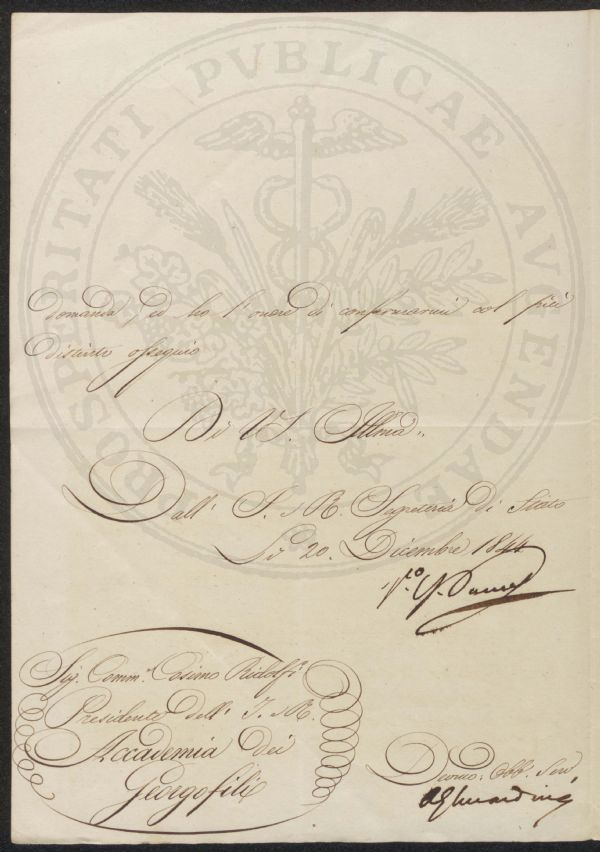 PROSPERITATI PVBLICAE AVGENDAE
domanda, ed ho l'onore di confermarmi col più
distinto ossequio
Di VS. Illma
Dall' I. e R. Segreteria di Stato
Li 20. Dicembre 1844
Sig. Comm.e Cosimo Ridolfi
Presidente dell' I. e R.
Accademia dei
Georgofili
Devmo: Obb. Serv.